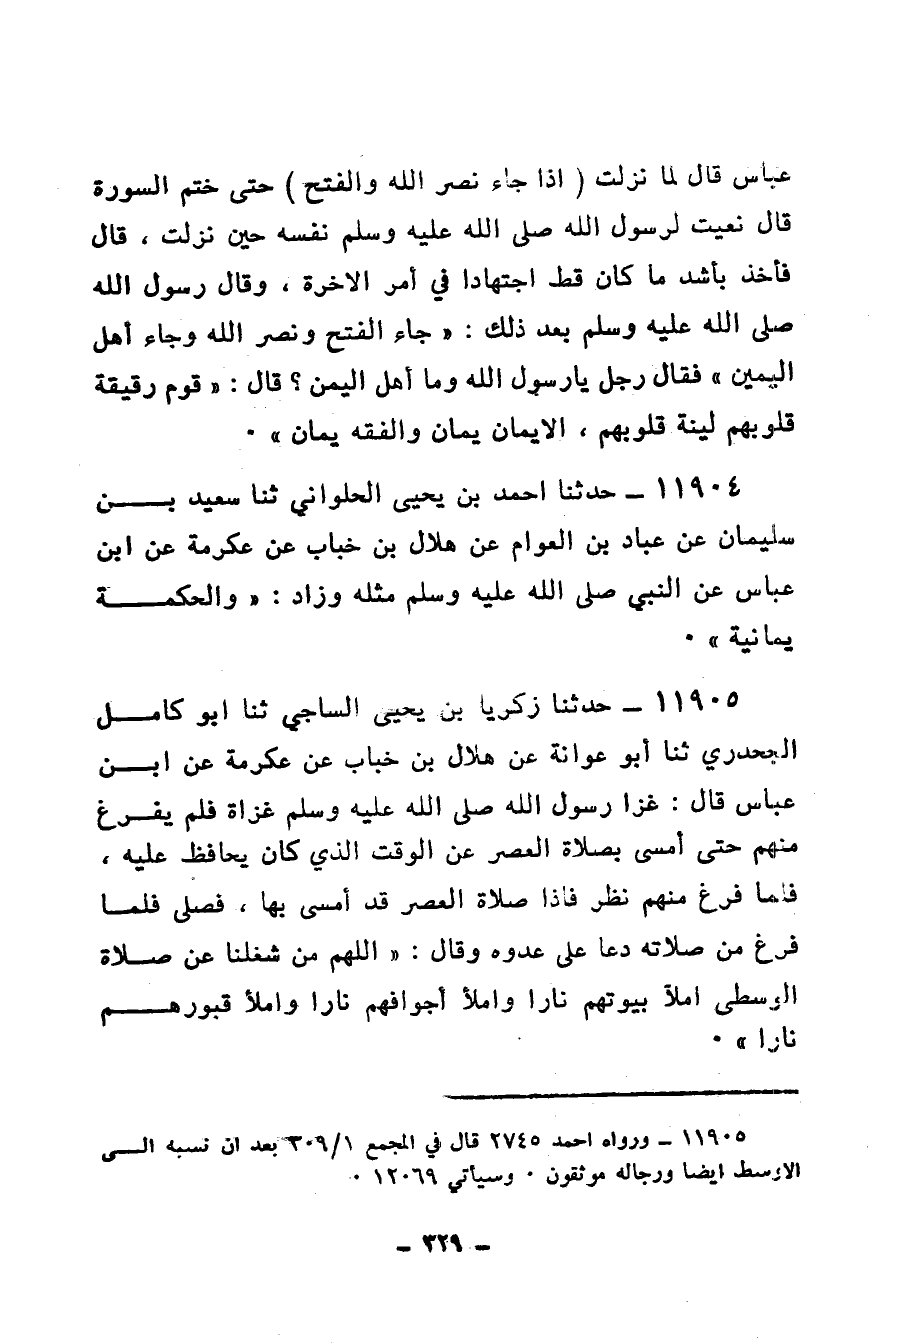 عباس قال لما نزلت ( اذا جاء نصر الله والفتح ) حتى ختم السورة
قال نعيت لرسول الله صلى الله عليه وسلم نفسه حين نزلت ، قال
فأخذ بأشد ما كان قط اجتهادا في أمر الاخرة ، وقال رسول الله
صلى الله عليه وسلم بعد ذلك : « جاء الفتح ونصر الله وجاء أهل
اليمين » فقال رجل يارسول الله وما أهل اليمن ؟ قال : « قوم رقيقة
قلوبهم لينة قلوبهم ، الايمان يمان والفقه يمان » ٠
١١٩٠٤ ــ حدثنا احمد بن يحيى الحلواني ثنا سعيد بـــــن
سليمان عن عباد بن العوام عن هلال بن خباب عن عكرمة عن ابن
عباس عن النبي صلى الله عليه وسلم مثله وزاد : « والحكمـــــة
يمانية » ٠
١١٩٠٥ ــ حدثنا زكريا بن يحيى الساجي ثنا ابو كامــل
الجحدري ثنا أبو عوانة عن هلال بن خباب عن عكرمة عن ابــن
عباس قال : غزا رسول الله صلى الله عليه وسلم غزاة فلم يفـرغ
منهم حتى أمسى بصلاة العصر عن الوقت الذي كان يحافظ عليه ،
فلما فرغ منهم نظر فاذا صلاة العصر قد أمسى بها ، فصلى فلمــا
فرغ من صلاته دعا على عدوه وقال : « اللهم من شغلنا عن صــلاة
الوسطى املآ بيوتهم نارا واملأ أجوافهم نارا واملأ قبورهـــــم
نارا » ٠
١١٩٠٥ ــ ورواه احمد ٢٧٤٥ قال في المجمع ٣٠٩/١ بعد ان نسبه الــى
الاوسط ايضا ورجاله موثقون ٠ وسيأتي ١٢٠٦٩ ٠
ــ ٣٢٩ ــ